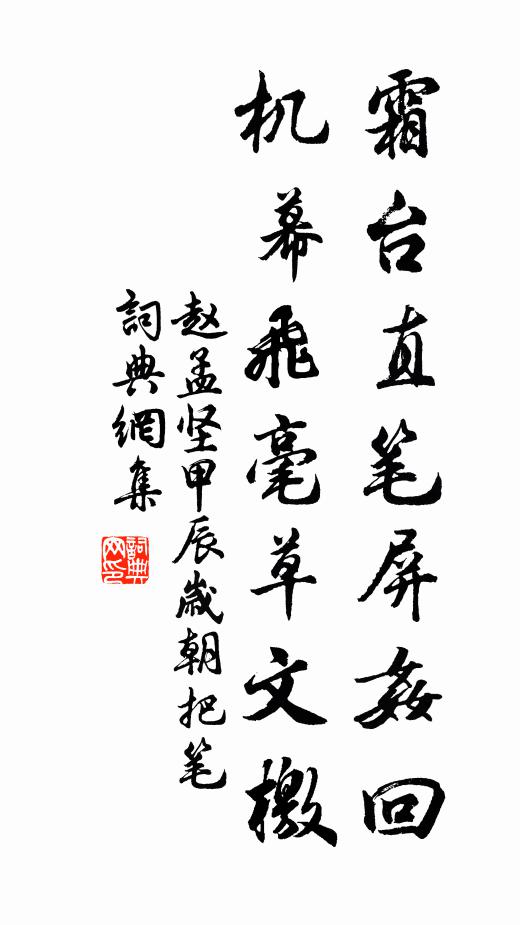 霜台直笔屏姦回
机幕飛毫草文檄
赵孟坚甲辰歲朝把笔
詞典網集
詞典網印